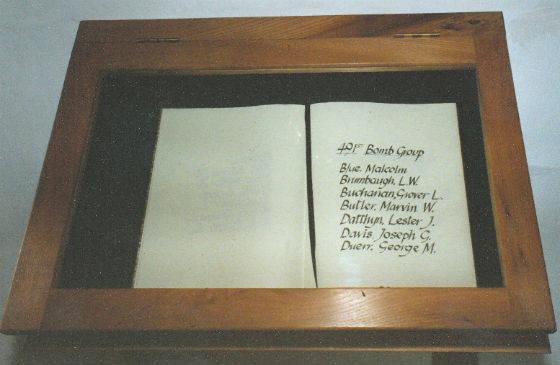 491ST Bomb Group
Blue, Malcolm
Brumbaugh, L.W.
Buchanan, Grover L.
Butler, Marvin W.
Datthyn, Lester J.
Davis, Joseph G.
Duerr, George M.